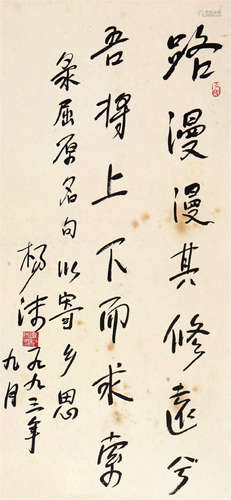 路漫漫其修遠兮
吾将上下而求索
录屈原名句以寄乡思
杨沫
一九九三年
九月